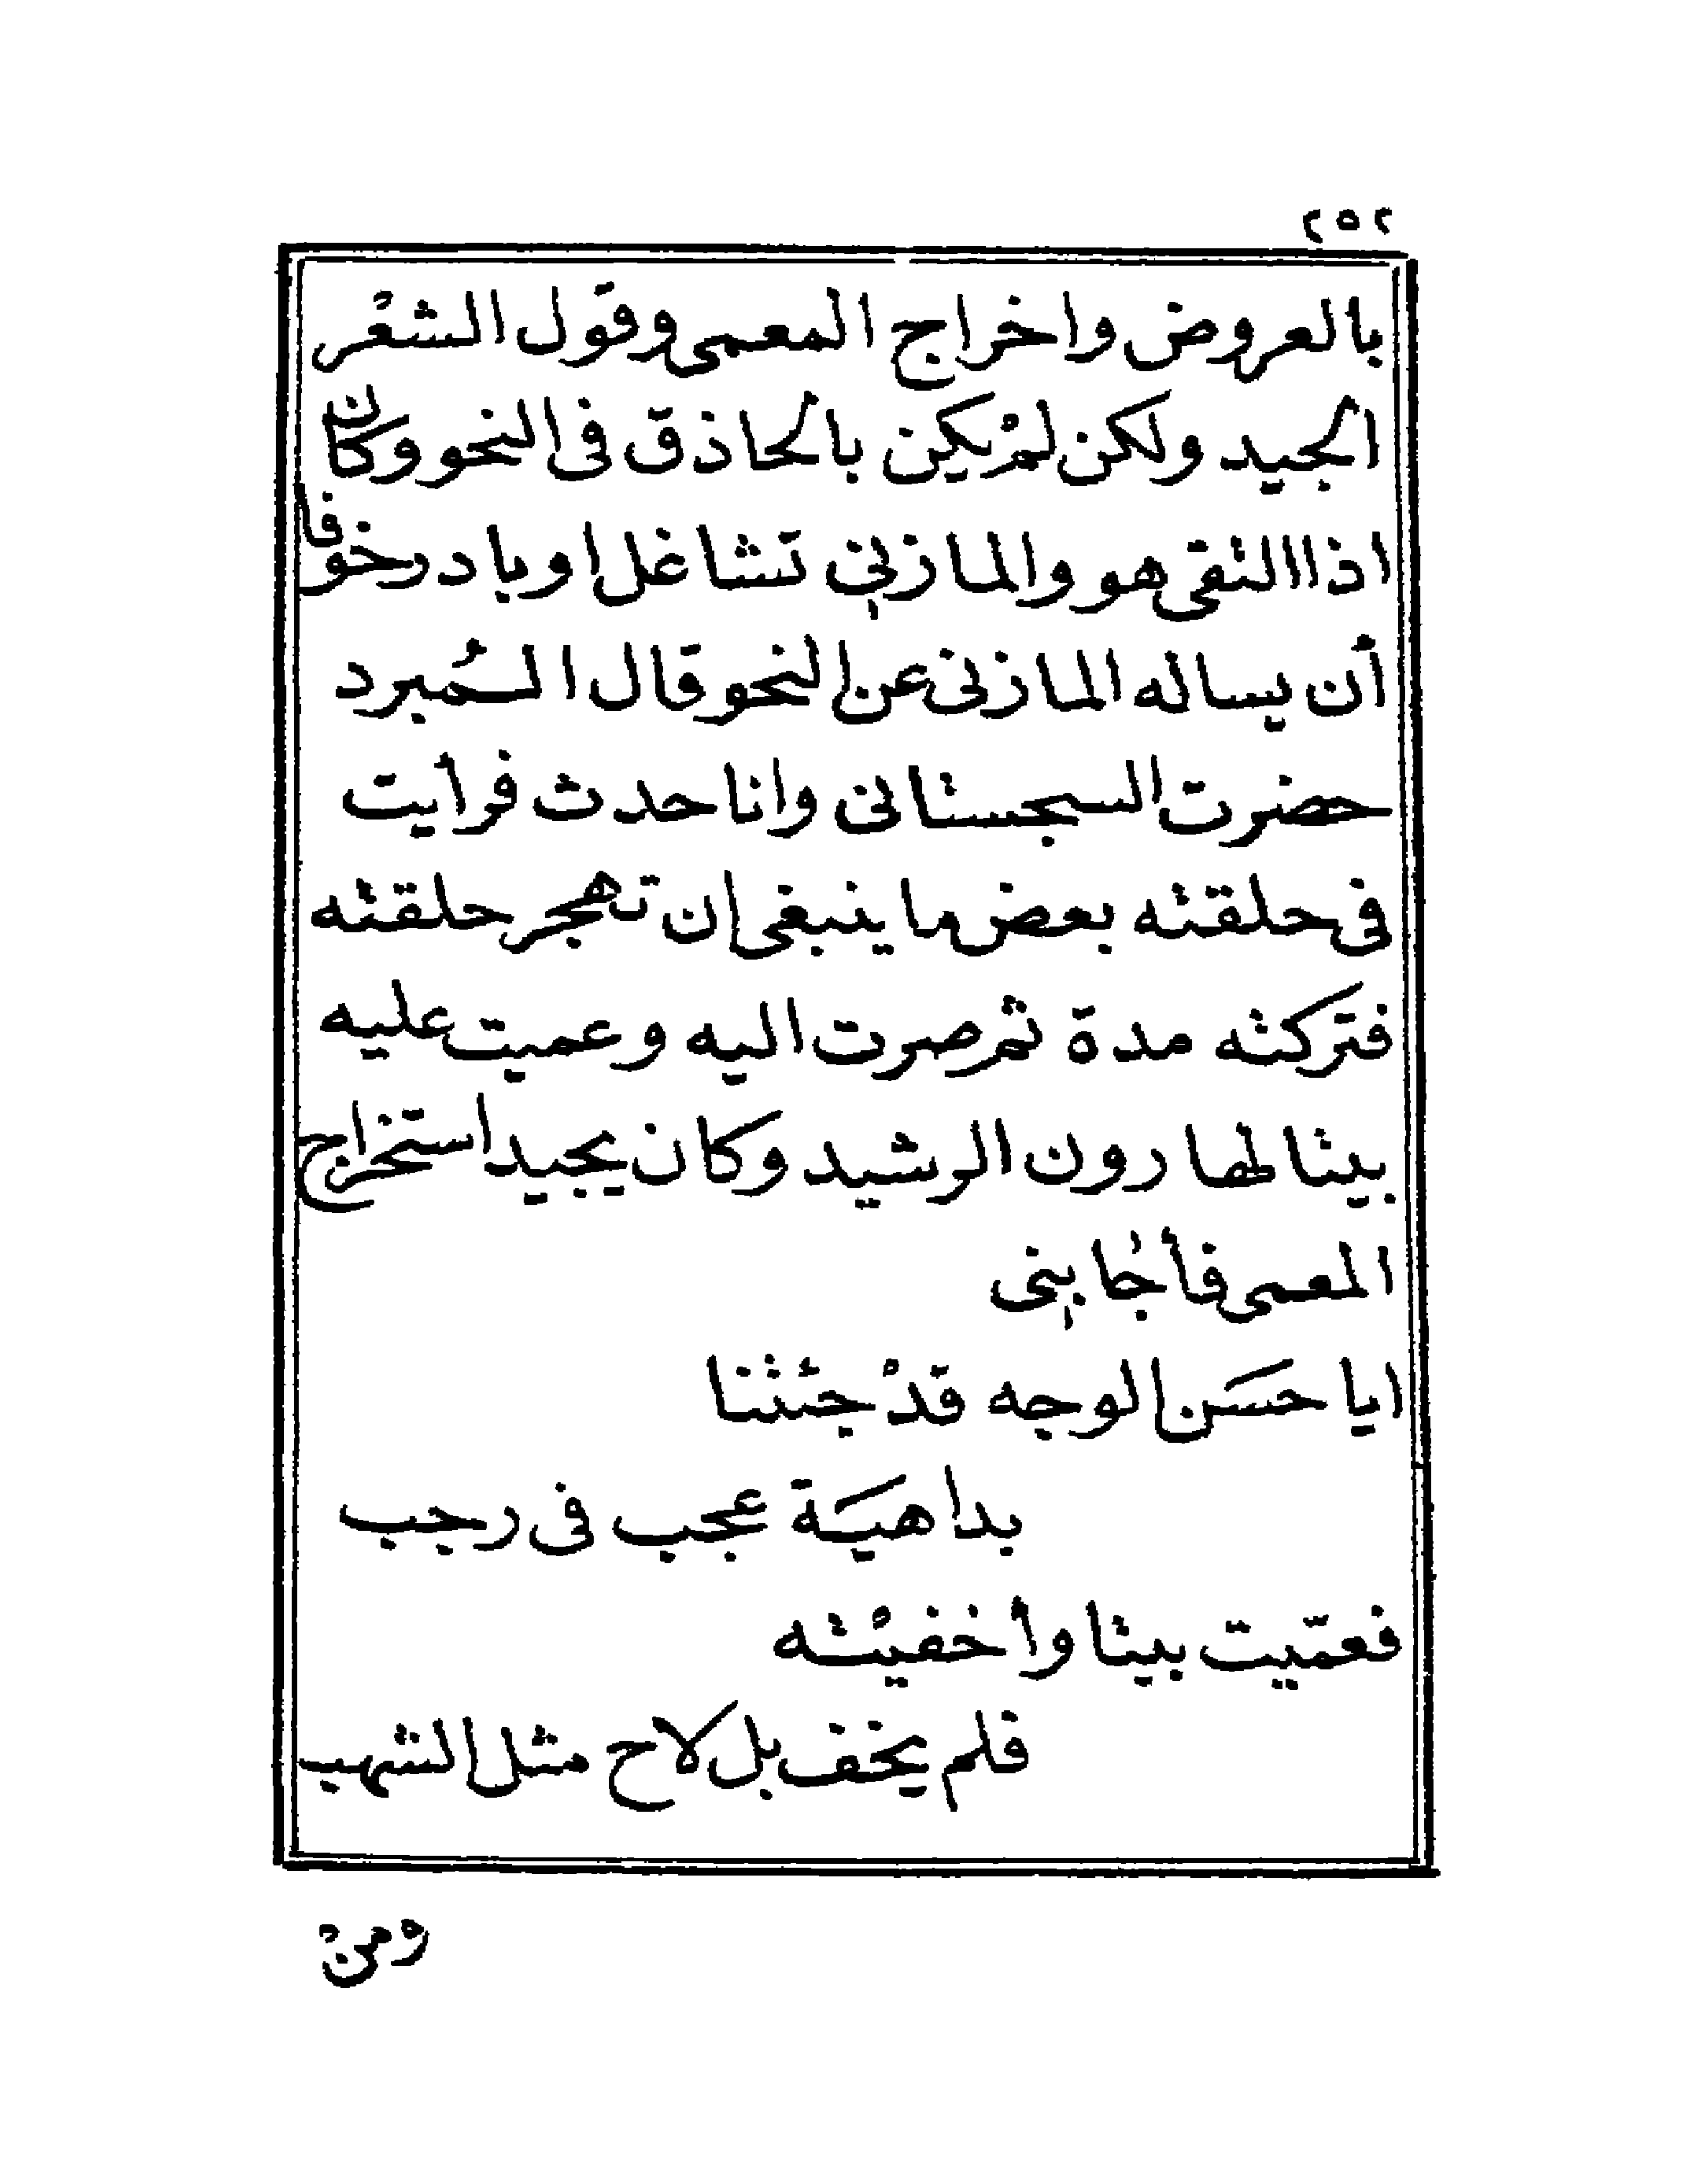 ٢٥٢
بالعروض واخراج المعمى وقول الشعْر
الجيد ولكن لمْ يكن بالحاذق فى النحو وكان
اذا التقى هو والمازنى تشاغل او بادر خوفا
أن يساله المازنى عن النحو قال المُبرد
حضرت السجستانى وانا حدث فرأيت
فى حلقته بعض ما ينبغى ان تهجر حلقته
فتركته مدة ثم صرت اليه وعميت عليه
بيتا لهارون الرشيد وكان يجيد استخراج
المعمى فأجابنى
ايا حسَن الوجه قدْ جئتنا
بداهيَة عجب فى رجب
فعمّيت بيتا وأخفيْته
فلم يخف بل لاح مثل الشهب
ومنْ